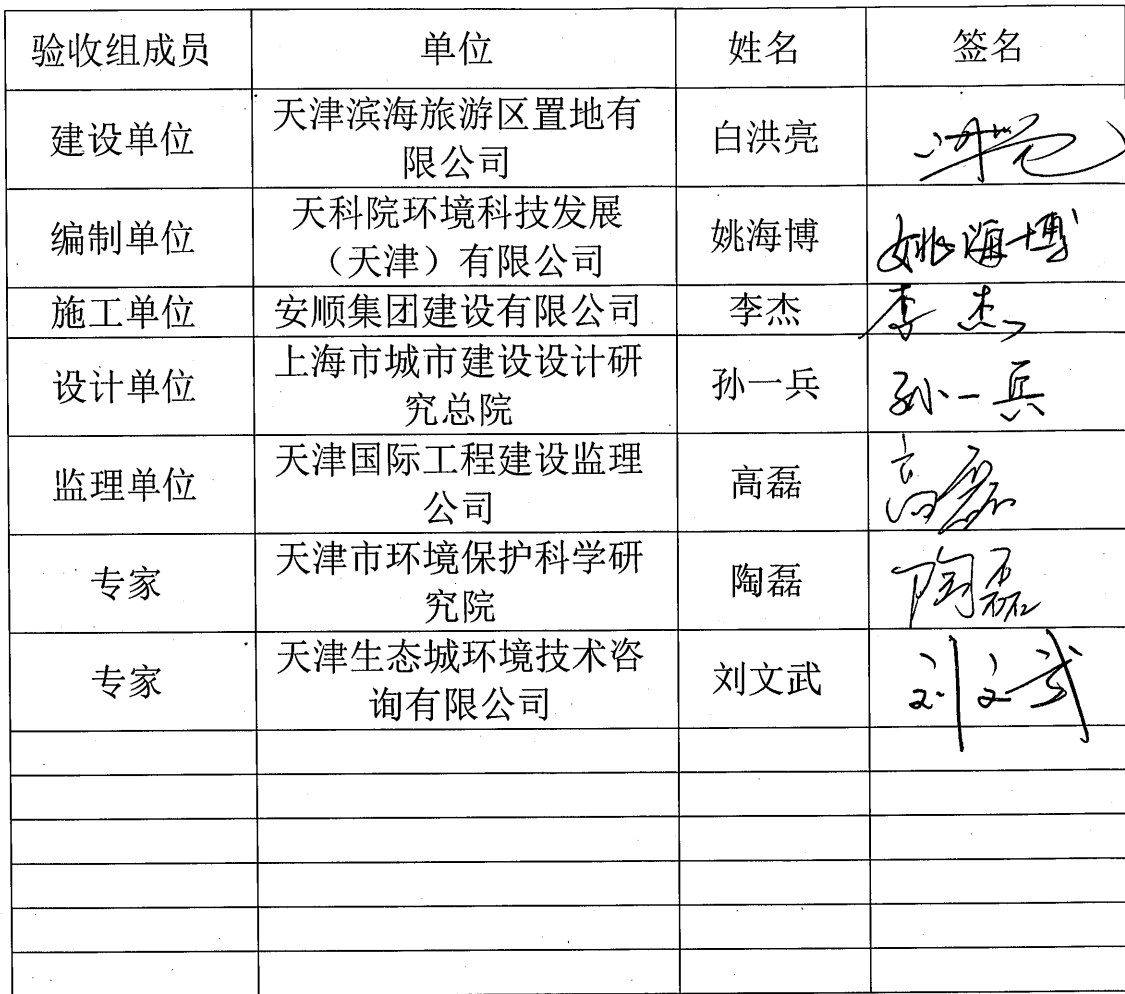 验收组成员 单位 姓名 签名
建设单位 天津滨海旅游区置地有
限公司 白洪亮
编制单位 天科院环境科技发展
（天津）有限公司 姚海博 姚海博
施工单位 安顺集团建设有限公司 李杰 李杰
设计单位 上海市城市建设设计研
究总院 孙一兵 孙一兵
监理单位 天津国际工程建设监理
公司 高磊 高磊
专家 天津市环境保护科学研
究院 陶磊 陶磊
专家 天津生态城环境技术咨
询有限公司 刘文武 刘文武